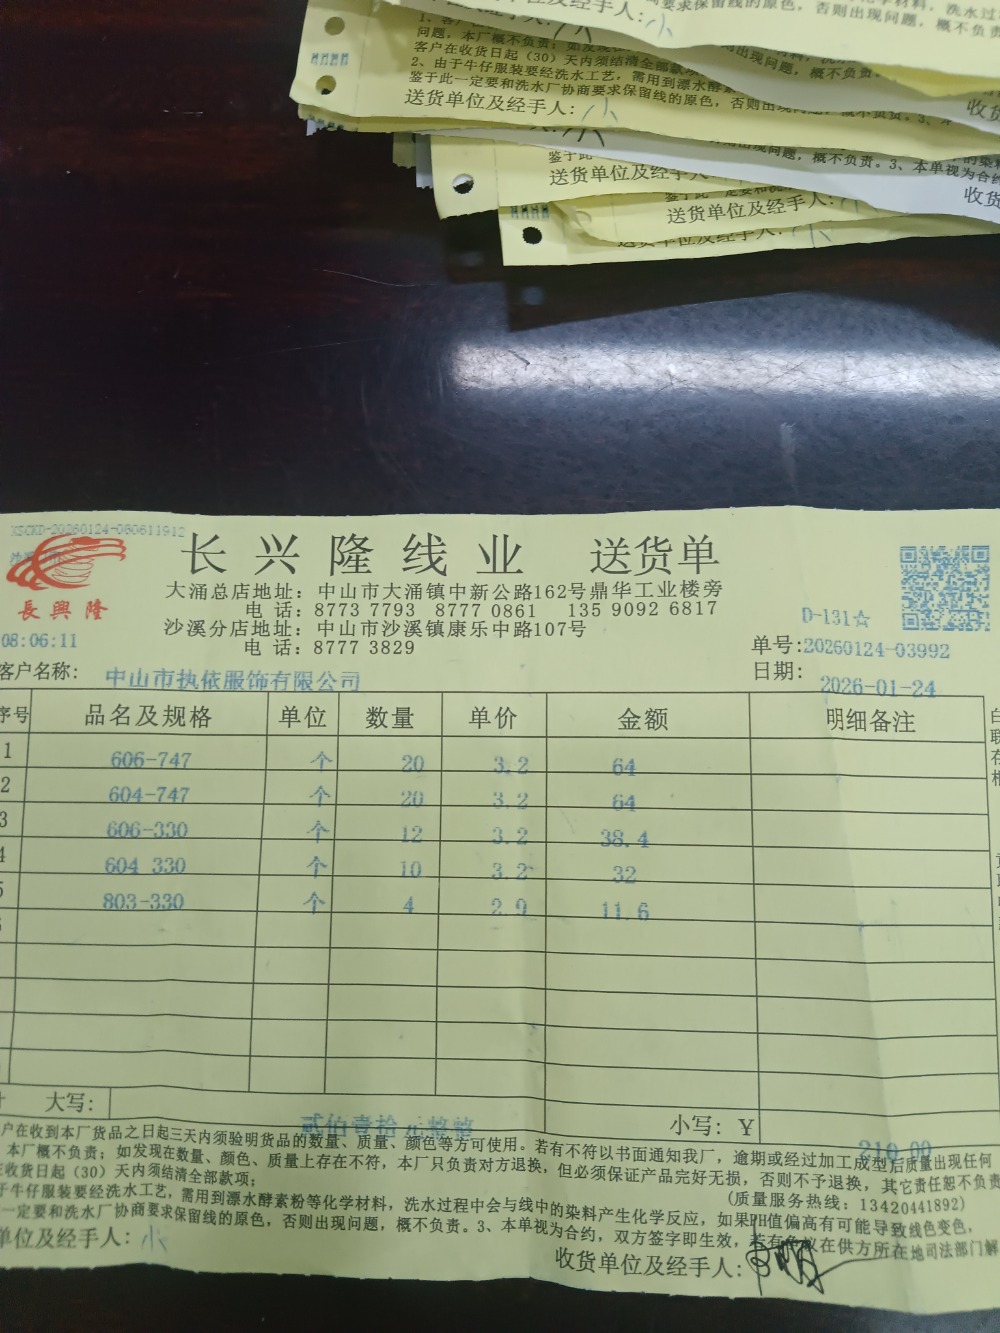 送货单位及经手人: 小
客户在收货日起（30）天内须结清全部款项
2、由于牛仔服装要经洗水工艺，需用到漂水酵素
鉴于此一定要和洗水厂协商要求保留线的原色，否则出现问题，概不负责。3、本
送货单位及经手人: 小
概不负责。3、本单视为合约
送货单位及经手人:
收货
送货单位及经手人:
送货单位及经手人: 小
XSCKD-20260124-080611912
長興隆
长兴隆线业 送货单
大涌总店地址：中山市大涌镇中新公路162号鼎华工业楼旁
电 话：8773 7793 8777 0861 135 9092 6817
沙溪分店地址：中山市沙溪镇康乐中路107号
电 话：8777 3829
D-131☆
08:06:11
单号:20260124-03992
客户名称: 中山市执依服饰有限公司
日期: 2026-01-24
序号 品名及规格 单位 数量 单价 金额 明细备注
1 606-747 个 20 3.2 64
2 604-747 个 20 3.2 64
3 606-330 个 12 3.2 38.4
4 604-330 个 10 3.2 32
5 803-330 个 4 2.9 11.6
大写: 贰佰壹拾元整整 小写: Y 210.00
户在收到本厂货品之日起三天内须验明货品的数量、质量、颜色等方可使用。若有不符以书面通知我厂，逾期或经过加工成型后质量出现任何
本厂概不负责；如发现在数量、颜色、质量上存在不符，本厂只负责对方退换，但必须保证产品完好无损，否则不予退换，其它责任恕不负责
在收货日起（30）天内须结清全部款项；
(质量服务热线：13420441892)
于牛仔服装要经洗水工艺，需用到漂水酵素粉等化学材料，洗水过程中会与线中的染料产生化学反应，如果PH值偏高有可能导致线色变色，
一定要和洗水厂协商要求保留线的原色，否则出现问题，概不负责。3、本单视为合约，双方签字即生效，若有争议在供方所在地司法部门解
单位及经手人: 小
收货单位及经手人: